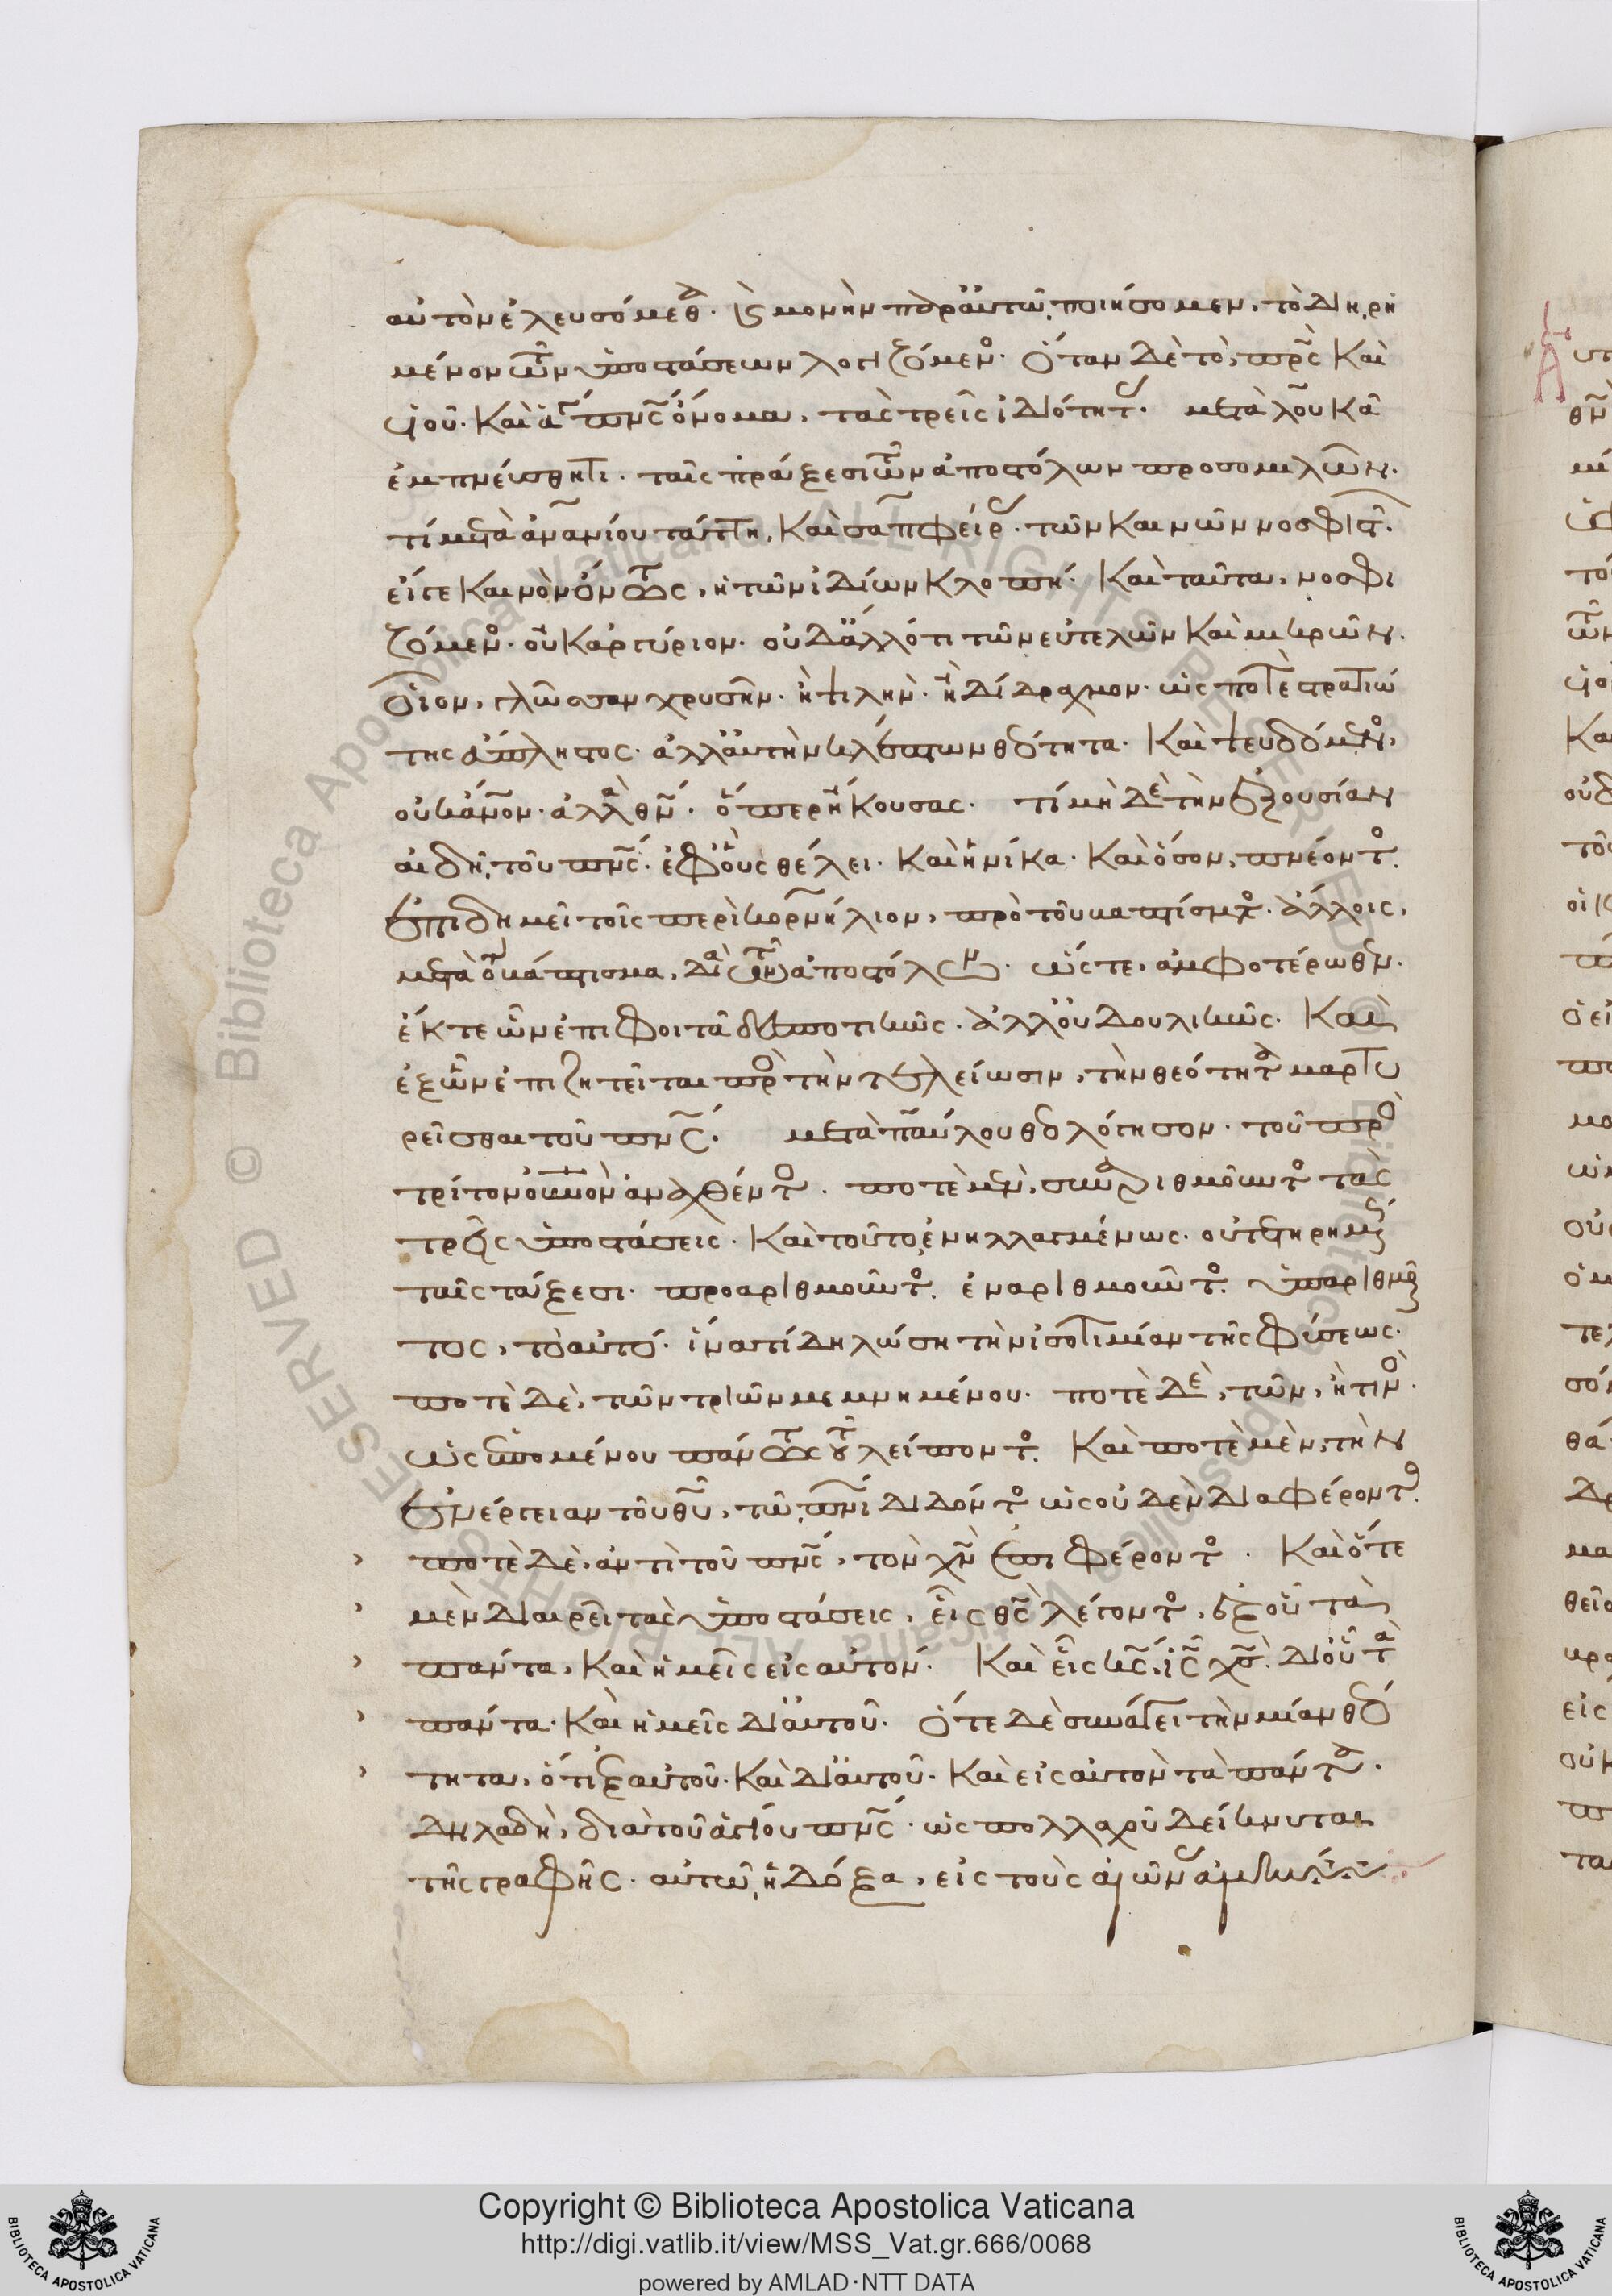 αὐτὸν ἐλευσόμεθα. καὶ μονὴν παρ' αὐτῷ ποιήσομεν, τὸ διῃρη
μένον τῶν ὑποστάσεων λογιζόμενος. ὅταν δὲ τὸ, πρς καὶ
υἱοῦ. καὶ ἁγίου πνς ὄνομα, τὰς τρεῖς ἰδιότητας. μετὰ λουκᾶ
ἐμπνεύσθητι. ταῖς πράξεσι τῶν ἀποστόλων προσομιλῶν.
τί μετὰ ἀνανίου τάττῃ, καὶ σαπφείρας. τῶν καινῶν νοσφιστῶν.
εἴγε καινὸν ὄντως, ἡ τῶν ἰδίων κλοπή. καὶ ταῦτα, νοσφι
ζόμενος. οὐκ ἀργύριον. οὐδ' ἄλλό τι τῶν εὐτελῶν καὶ μικρῶν.
οἷον, γλῶσσαν χρυσῆν. ἢ ψιλὴν. ἢ δίδραχμον. ὡς ποτὲ στρατιώ
της ἄπληστος. ἀλλ' αὐτὴν κλέπτων θεότητα. καὶ ψευδόμενος,
οὐκ ἀνοις. ἀλλὰ θω. ὅπερ ἤκουσας. τί μὴ δὲ τὴν ἐξουσίαν
αἰδῇ, τοῦ πνς. ἐφ' οὓς θέλει. καὶ ἡνίκα. καὶ ὅσον, πνέοντος.
ἐπιδημεῖ τοῖς περὶ κορνήλιον, πρὸ τοῦ βαπτίσματος. ἄλλοις,
μετὰ τὸ βάπτισμα, διὰ τῶν ἀποστόλων. ὥστε, ἀμφοτέρωθεν.
ἔκ τε ὧν ἐπιφοιτᾶ δεσποτικῶς. ἀλλ' οὐ δουλικῶς. καὶ
ἐξ ὧν ἐπιζητεῖται πρὸς τὴν τελείωσιν, τὴν θεότητα μαρτυ
ρεῖσθαι τοῦ πνς. μετὰ παύλου θεολόγησον. τοῦ πρὸς
τρίτον οὐνον ἀναχθέντος. ποτὲ μὲν, συναριθμοῦντος τὰς
τρεῖς ὑποστάσεις. καὶ τοῦτο, ἐνηλλαγμένως. οὐ τετηρημένως
ταῖς τάξεσι. προαριθμοῦντος. ἐναριθμοῦντος. ὑπαριθμοῦν
τος, τὸ αὐτό. ἵνα τί δηλώσῃ τὴν ἰσοτιμίαν τῆς φύσεως.
ποτὲ δὲ, τῶν τριῶν μεμνημένου. ποτὲ δὲ, τῶν, ἢ τινὸς.
ὡς ἑπομένου πάντως τοῦ λείποντος. καὶ ποτὲ μὲν, τὴν
ἐνέργειαν τοῦ θυ, τῷ πνι διδόντος ὡς οὐδὲν διαφέροντος.
ποτὲ δὲ, ἀντὶ τοῦ πνς, τὸν χν ἐπιφέροντος. καὶ ὅτε
μὲν διαιρεῖ τὰς ὑποστάσεις, εἷς θς λέγοντος, ἐξ οὗ τὰ
πάντα, καὶ ἡμεῖς εἰς αὐτόν. καὶ εἷς κς, ις χς. δι' οὗ τὰ
πάντα. καὶ ἡμεῖς δι' αὐτοῦ. ὅτε δὲ συνάγει τὴν μίαν θεό
τητα, ὅτι ἐξ αὐτοῦ. καὶ δι' αὐτοῦ. καὶ εἰς αὐτὸν τὰ πάντα.
δηλαδὴ, διὰ τοῦ ἁγίου πνς. ὡς πολλαχοῦ δείκνυται
τῆς γραφῆς. αὐτῷ ἡ δόξα, εἰς τοὺς αἰῶνας ἀμήν
Copyright © Biblioteca Apostolica Vaticana
http://digi.vatlib.it/view/MSS_Vat.gr.666/0068
powered by AMLAD·NTT DATA